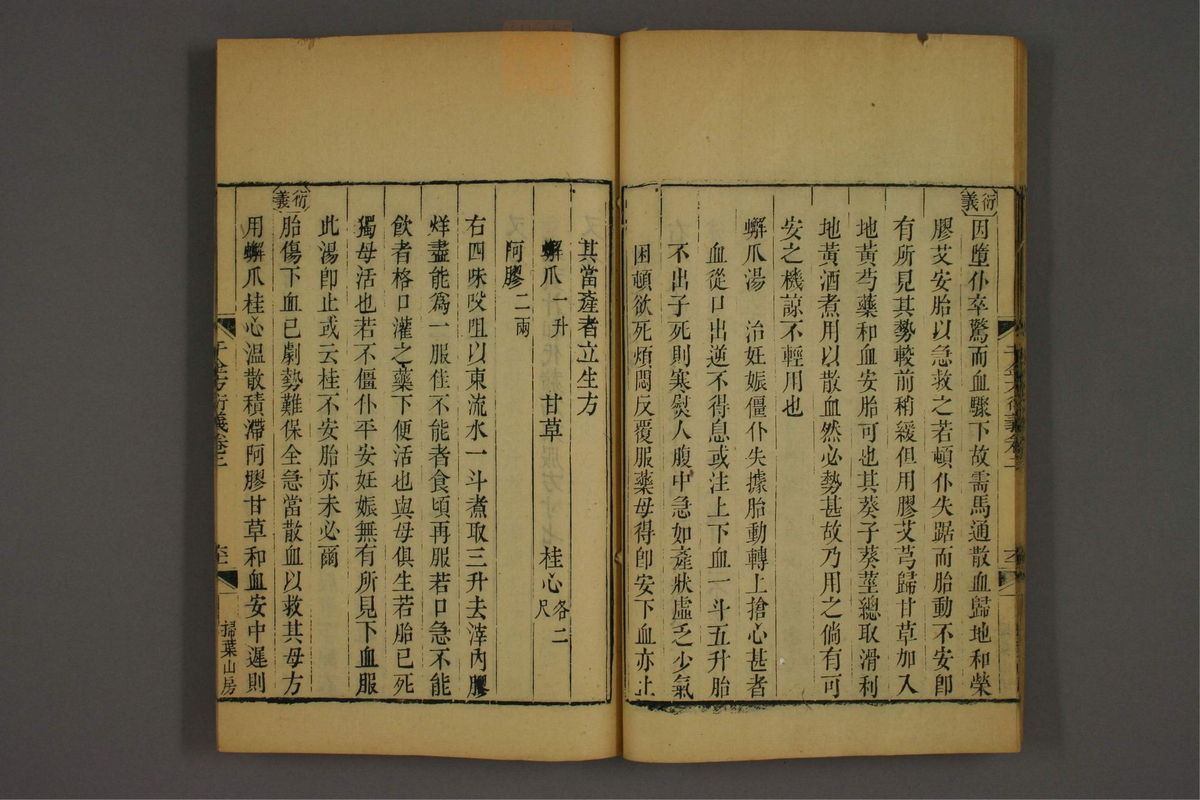 衍義
因墮仆卒驚而血驟下故需馬通散血歸地和榮
膠艾安胎以急救之若頓仆失踞而胎動不安卽
有所見其勢較前稍緩但用膠艾芎歸甘草加入
地黃芍藥和血安胎可也其葵子葵莖總取滑利
地黃酒煮用以散血然必勢甚故乃用之倘有可
安之機諒不輕用也
蠏爪湯 治妊娠僵仆失據胎動轉上搶心甚者
血從口出逆不得息或注上下血一斗五升胎
不出子死則寒熨人腹中急如產狀虛乏少氣
困頓欲死煩悶反覆服藥母得卽安下血亦止
其當產者立生方
蠏爪一升 甘草 桂心各二尺
阿膠二兩
右四味㕮咀以東流水一斗煮取三升去滓內膠
烊盡能爲一服佳不能者食頃再服若口急不能
飲者格口灌之藥下便活也與母俱生若胎已死
獨母活也若不僵仆平安妊娠無有所見下血服
此湯卽止或云桂不安胎亦未必爾
衍義
胎傷下血已劇勢難保全急當散血以救其母方
用蠏爪桂心溫散積滯阿膠甘草和血安中遲則
千金方衍義卷二
掃葉山房